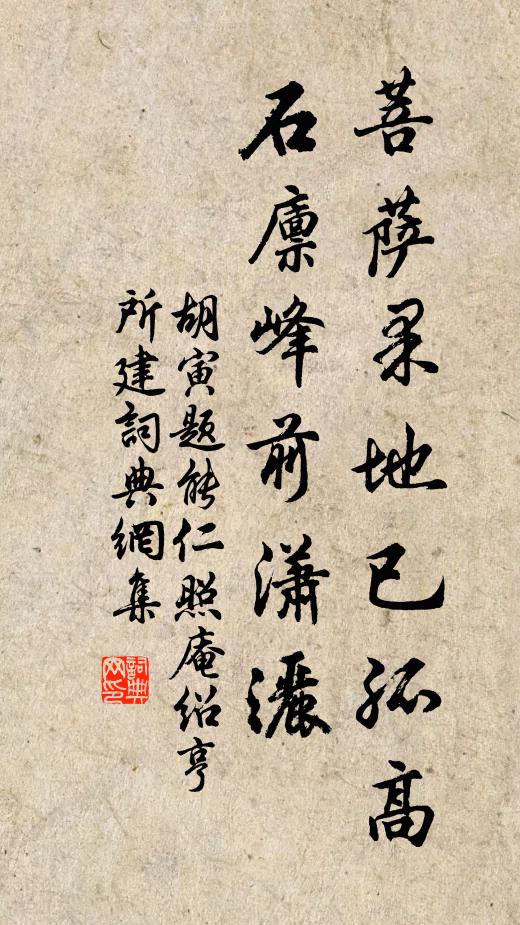 菩薩果地已孤高
石廪峰前瀟灑
胡寅題能仁照庵紹亨
所建詞典網集
詞典網印